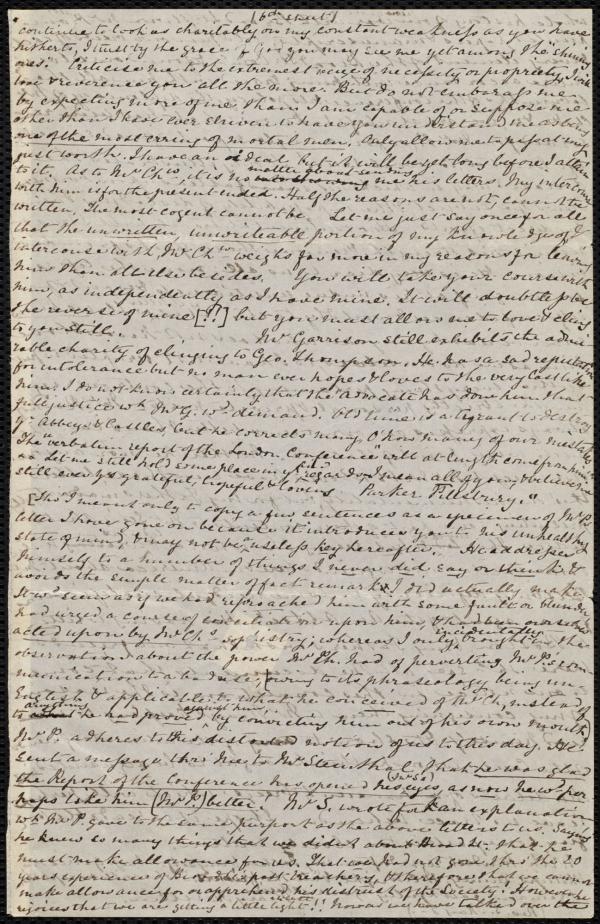 [6th sheet]
continue to look as charitably on my constant weakness as you have
hitherto, I trust by the grace of God you may see me yet among the "shining
ones." Criticise me to the extremest verge of necessity or propriety, I will
love & reverence you all the more. But do not embarrass me
by expecting more of me than I am capable of, or suppose me
other than I have ever striven to have you understand me as being
one of the most erring of mortal men. Only allow me to pass at my
just worth. I have an ideal but it will be long before I attain
to it. As to Mr Chn, it is no matter about sending me his letters. My intercourse
with him is for the present ended. Half the reasons are not, cannot be
written, The most cogent cannot be. Let me just say once for all
that the unwritten, unwriteable portion of my
intercourse with Mr Chn weighs far more in my reasons for leaving
him than all else besides. You will take your course with
him, as independently as I have mine. It will doubtless be
the reverse of mine [!?] but you must allow me to love & cling
to you still. Mr Garrison still exhibits the admi-
rable charity of clinging to Geo. Thompson. He has a sad reputation
for intolerance but no man ever hopes & loves to the very last like
him. I do not know certainly that the Advocate has done him that
full justice wh Mr G. wd demand. Old time is a tyrant & destroys
Abbeys & Castles, but he corrects many, O how many of our mistakes
The verbatim report of the London Conference will at length come from
Let me still hold some place in your regard, I mean all of you & believe me
still ever yrs grateful, hopeful & loving Parker Pillsbury."
[Tho' I meant only to copy a few sentences as a specimen of Mr P's
letter I have gone on because it introduces you to his unhealthy
state of mind, & may not be a useless key hereafter. He addresses
himself to a number of things I never did say or think &
avoids the simple matter of fact remarks I did actually make.
It wd seem as if we had reproached him with some fault or blunder
had urged a course of conciliation upon him, & had been ourselves
acted upon by Mr Ch's sophistry; whereas I only incidentally brought in the
observation about the power Mr Ch. had of perverting Mr P's com-
munication to a bad use, (owing to its phraseology being un-
English & applicable) to what he conceived of Mr Ch, instead of
to anything he had proved against him, by convicting him out of his own mouth)
Mr P. adheres to this distorted notion of us to this day. He
sent a message thro' me to Mr Steinthal "That he was glad
the Report of the Conference has opened his (Mr S's) eyes, as now he wd per-
haps take him (Mr P) better." Mr S. wrote for an explanation
wh Mr P gave to the same purport as the above letters to us. Saying
he knew so many things that we didn't about that he
must make allowance for us. That we had not gone thro' the 20
years experience of & therefore that we cannot
make allowance for or apprehend his distrust of the Society. However he
rejoices that we are getting a little light!! Now as we have talked over the